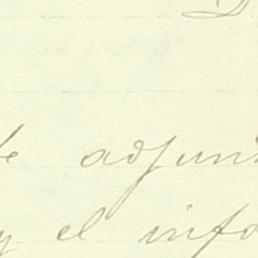 adjun
y el info